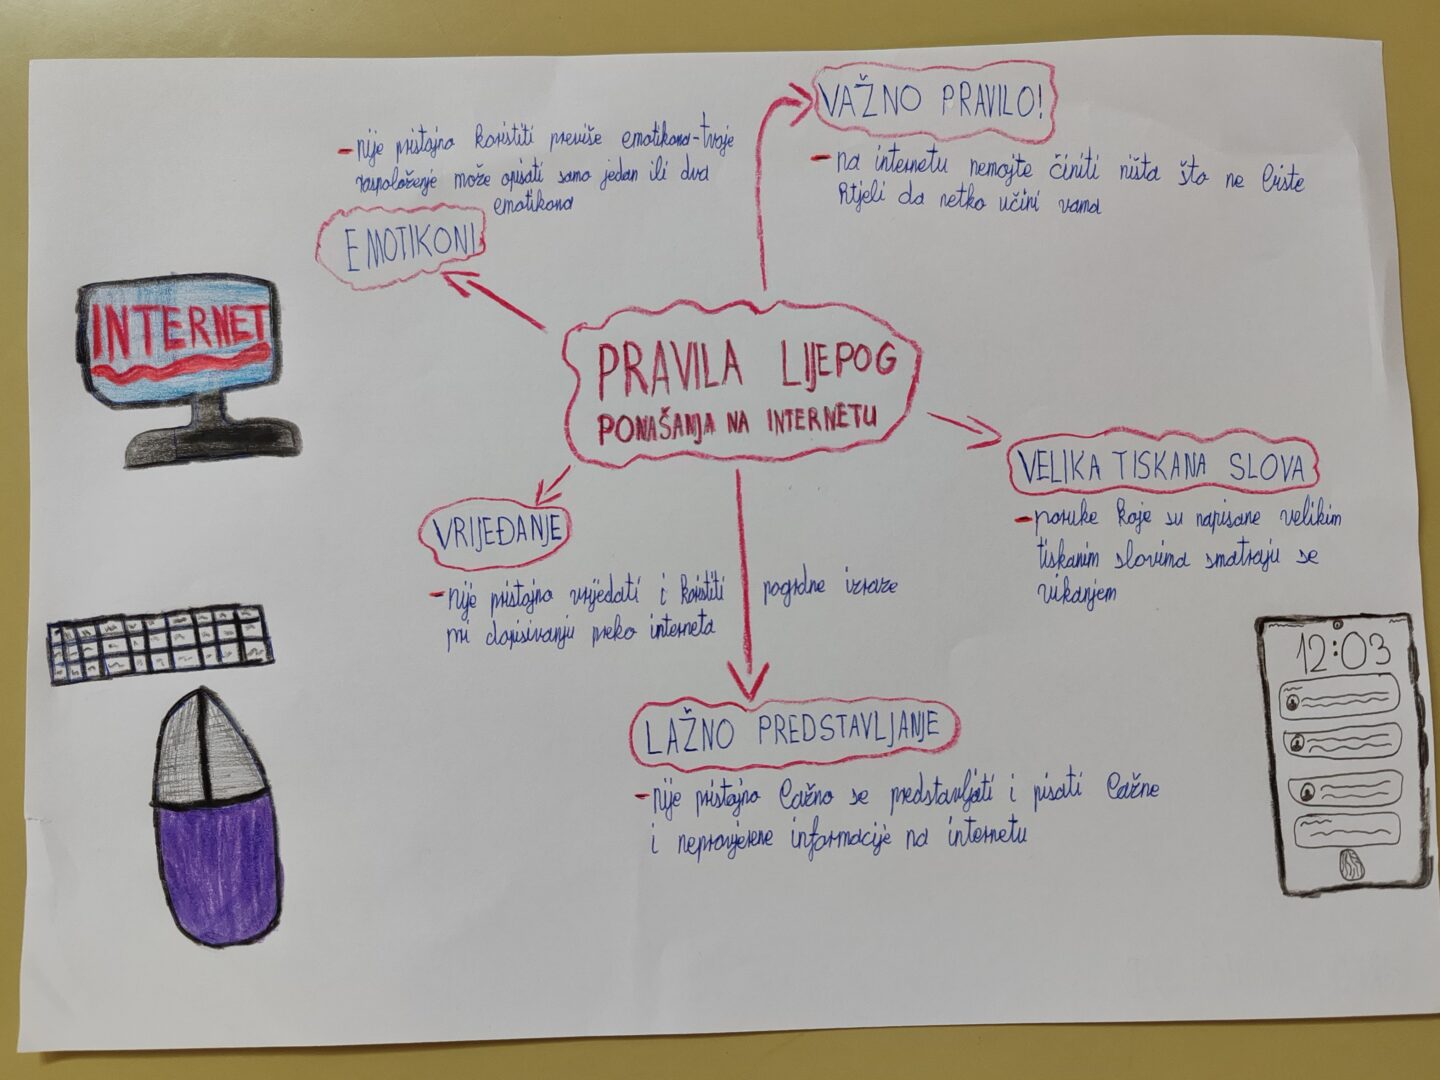 VAŽNO PRAVILO!
- na internetu nemojte činiti ništa što ne biste
htjeli da netko učini vama
- nije pristojno koristiti previše emotikona-tvoje
raspoloženje može opisati samo jedan ili dva
emotikona
EMOTIKONI
INTERNET
PRAVILA LIJEPOG
PONAŠANJA NA INTERNETU
VELIKA TISKANA SLOVA
- poruke koje su napisane velikim
tiskanim slovima smatraju se
vikanjem
VRIJEĐANJE
- nije pristojno vrijeđati i koristiti pogrdne izraze
pri dopisivanju preko interneta
LAŽNO PREDSTAVLJANJE
- nije pristojno lažno se predstavljati i pisati lažne
i neprovjerene informacije na internetu
12:03